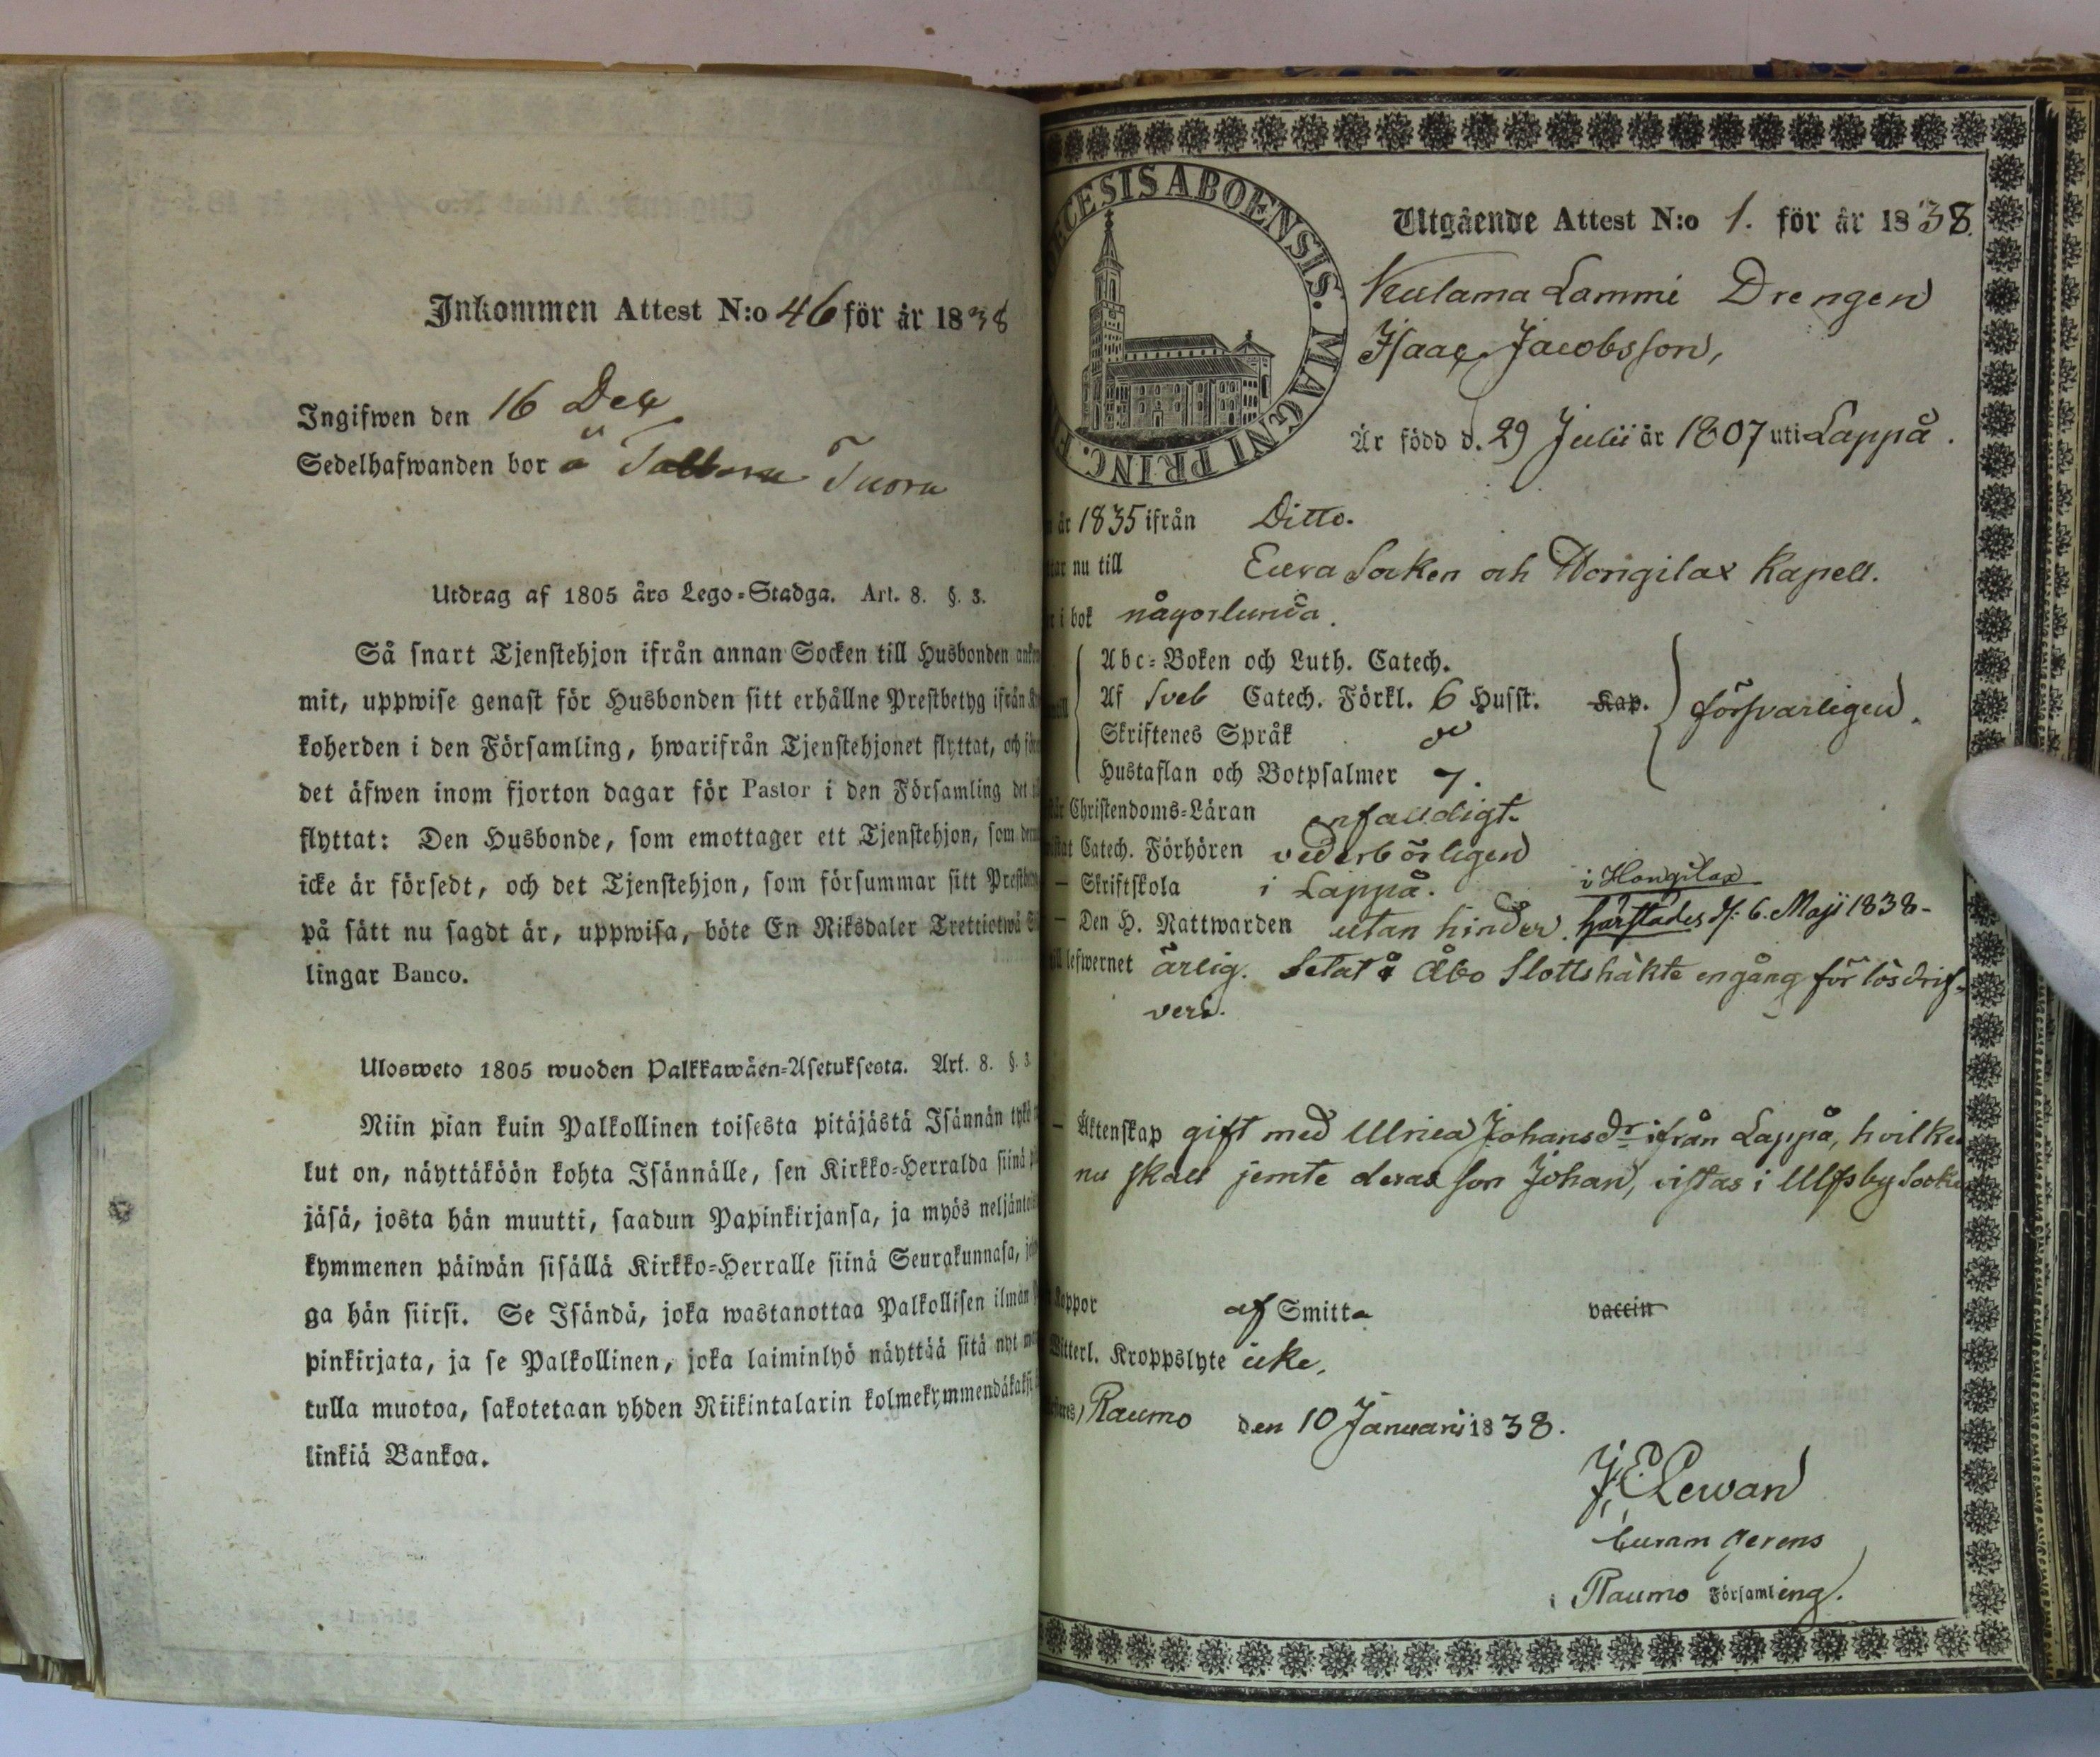 Inkommen Attest N:o 46 för år 1838
Ingifwen den 16 Dec
Sedelhafwanden bor å Tuoru
Utdrag af 1805 års Lego-Stadga. Art. 8. §. 3.
Så snart Tjenstehjon ifrån annan Socken till Husbonden
mit, uppwise genast för Husbonden sitt erhållne Prestbetyg ifrån
koherden i den Församling, hwarifrån Tjenstehjonet flyttat, och
det äfwen inom fjorton dagar för Pastor i den Församling det
flyttat: Den Husbonde, som emottager ett Tjenstehjon, som
icke är försedt, och det Tjenstehjon, som försummar sitt
på sätt nu sagdt är, uppwisa, böte En Riksdaler Trettiotwå
lingar Banco.
Ulosweto 1805 wuoden Palkkawäen-Asetuksesta. Art. 8. §. 3
Niin pian kuin Palkollinen toisesta pitäjästä Isännän
lut on, näyttäköön kohta Isännälle, sen Kirkko-Herralda siinä
jäsä, josta hän muutti, saadun Papinkirjansa, ja myös
kymmenen päiwän sisällä Kirkko-Herralle siinä Seurakunnasa,
ga hän siirsi. Se Isändä, joka wastanottaa Palkollisen ilman
pinkirjata, ja se Palkollinen, joka laiminlyö näyttää sitä nyt
tulla muotoa, sakotetaan yhden Riikintalarin
linkiä Bankoa.
DIOECESIS ABOENSIS. MAGNI PRINC. F
Utgående Attest N:o 1. för år 1838.
Kulama Lammi Drengen
Isaac Jacobsson,
Är född d. 29 Julii år 1807 uti Lappå.
år 1835 ifrån Ditto.
nu till Eura Socken och Hongilax Kapell.
i bok någorlunda.
Abc-Boken och Luth. Catech.
Af Sveb Catech. Förkl. 6 Husst. Kap. försvarligen.
Skriftenes Språk
Hustaflan och Botpsalmer 7.
Christendoms-Läran enfalldigt.
Catech. Förhören vederbörligen
— Skriftskola i Lappå. i Hongilax
— Den H. Nattwarden utan hinder. 6. Maji 1838-
lefwernet ärlig. Setat å Åbo Slottshäkte engång för lösdrif-
veri.
— Äktenskap gift med Ulrica Johansdr ifrån Lappå, hvilken
nu skall jemte deras son Johan, vistas i Ulfsby Socken
Koppor af Smitta vaccin
Witterl. Kroppslyte icke,
Raumo den 10 Januarii 1838.
J, E Lewan
Curam gerens
i Raumo Församling.